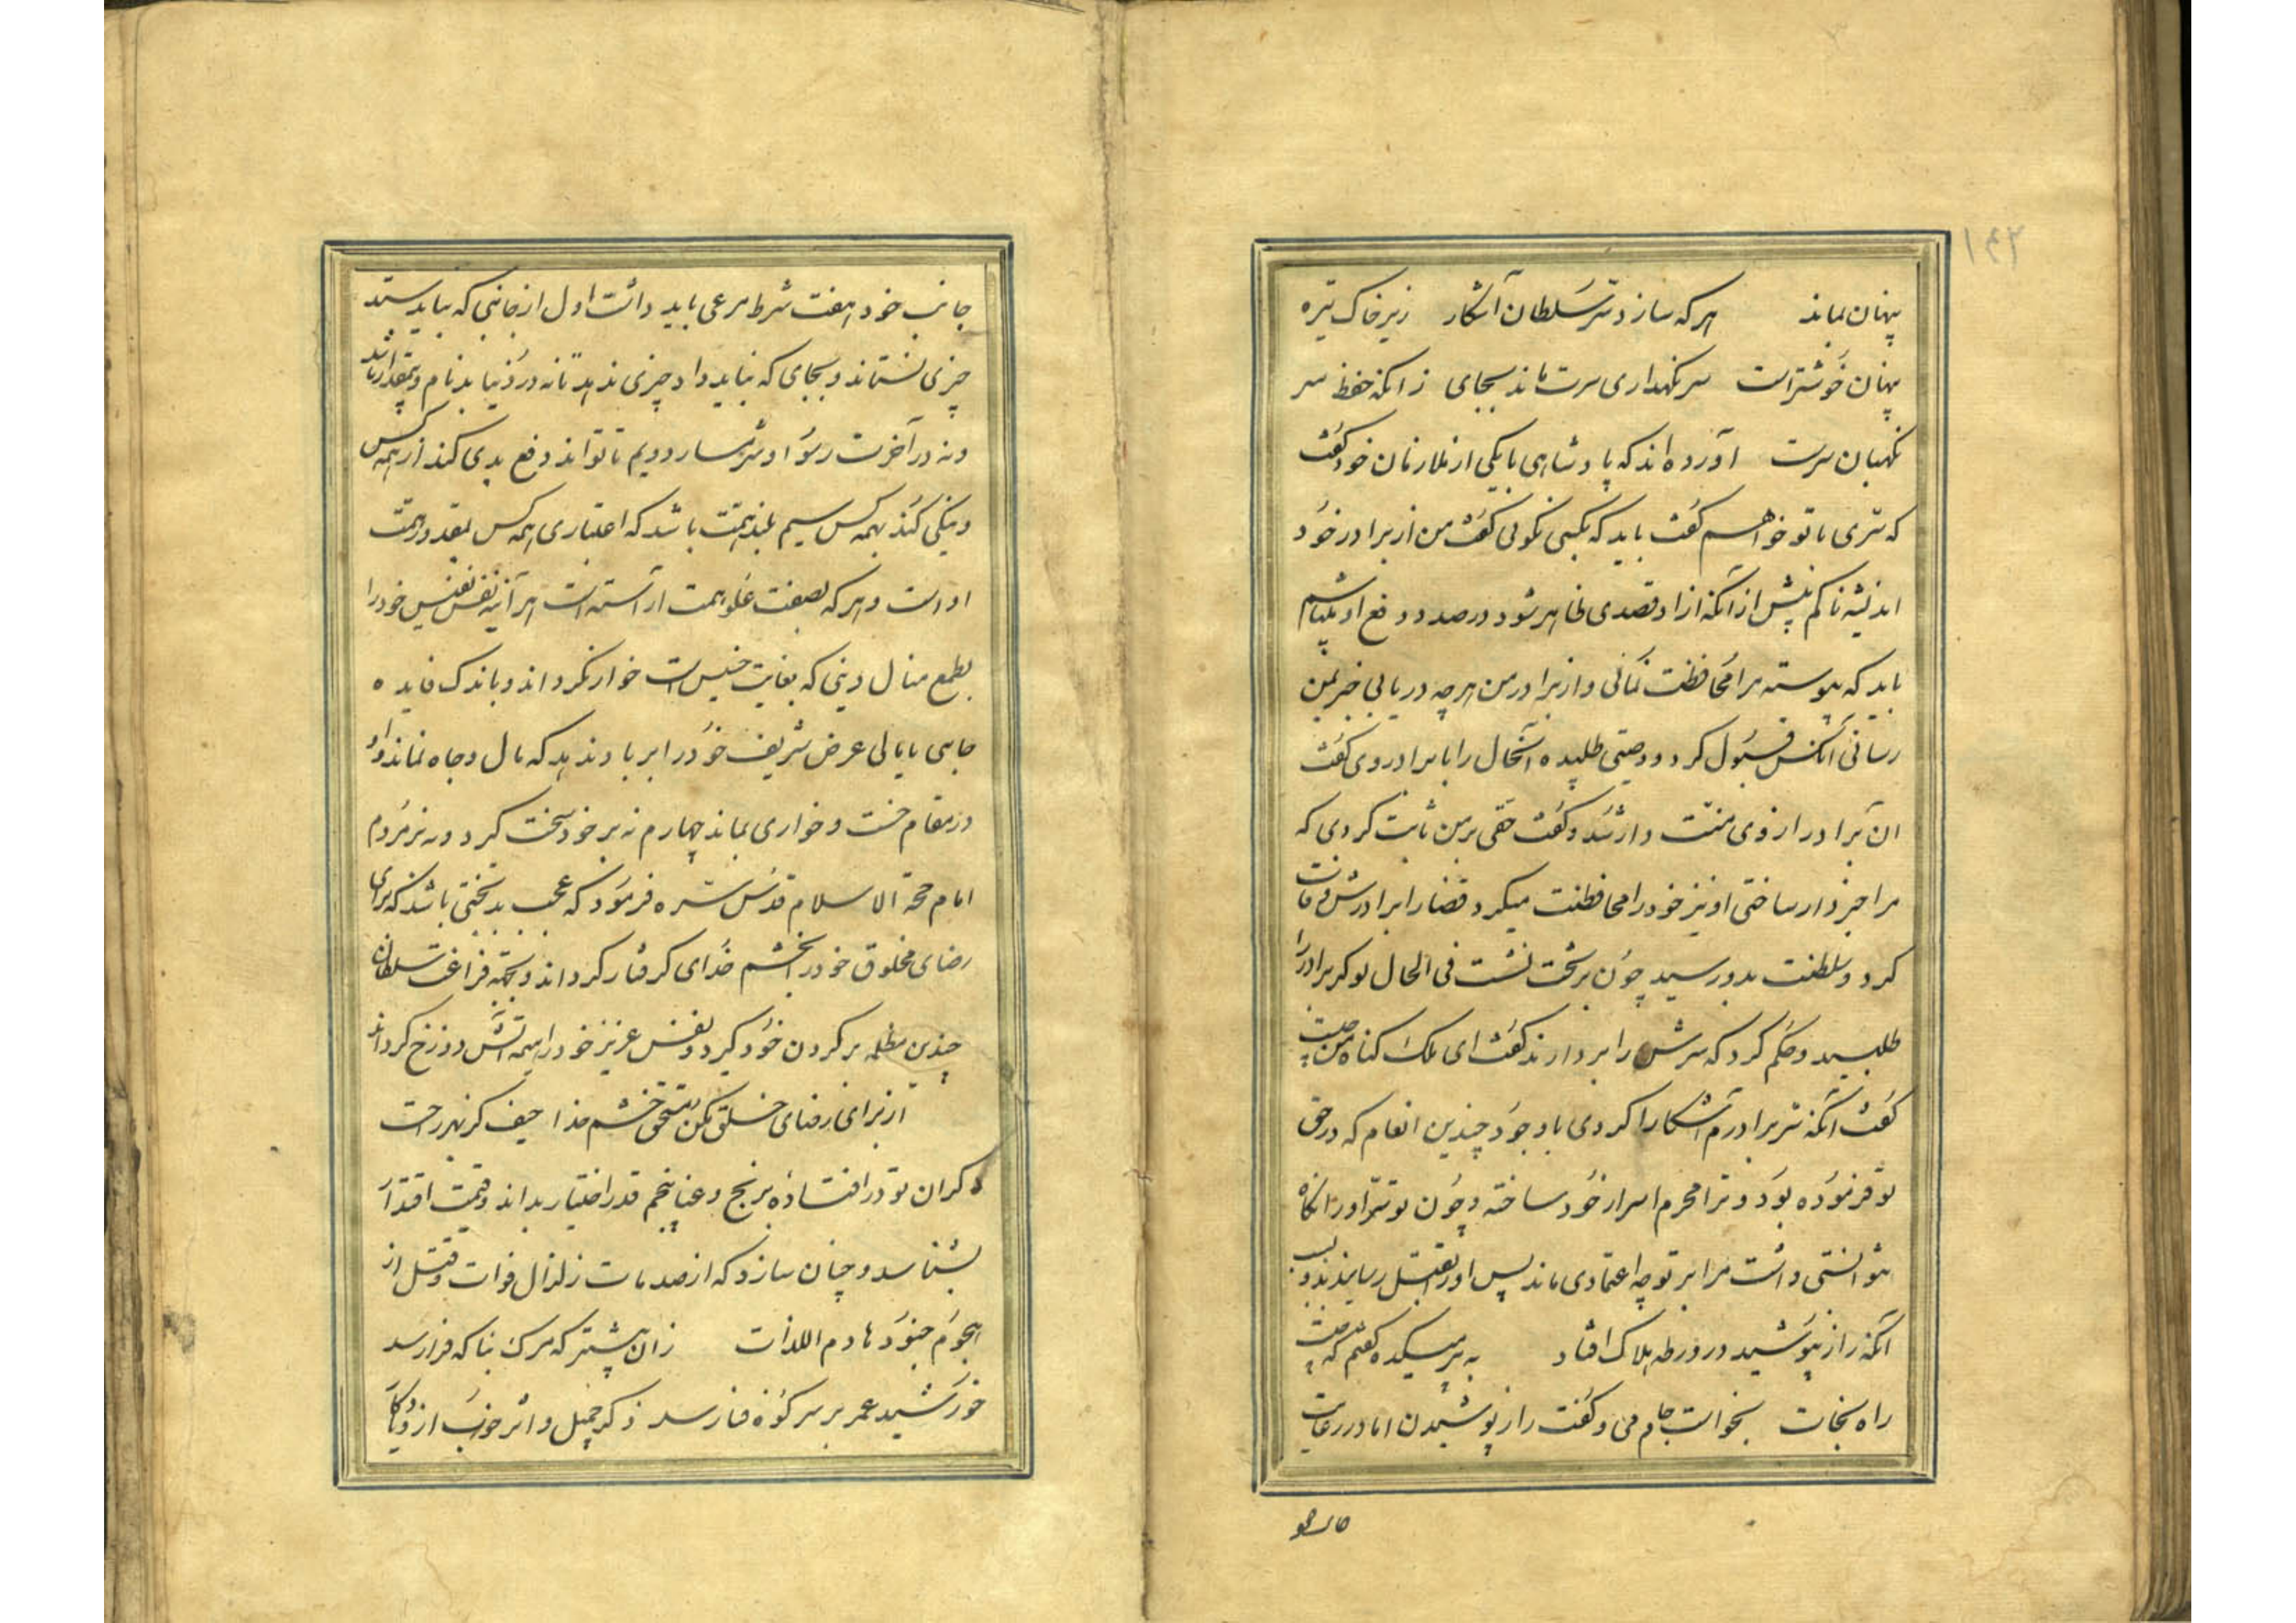 ۱۴۲
پنهان نماند هرکه سازد سر سلطان آشکار زیر خاک تیره
پنهان خوشتر است سر نگهداری سرت ماند بجای زانکه حفظ سر
نگهبان سرست آورده‌اند که پادشاهی با یکی از ملازمان خود گفت
که سری با تو خواهم گفت باید که بکسی نگوئی گفت من از برادر خود
اندیشه ناکم پیش از آنکه از او قصدی ظاهر شود در صدد دفع او میباشم
باید که پیوسته مرا محافظت نمائی و از برادر من هرچه دریابی خبر بمن
رسانی آنکس قبول کرد و وصیتی طلبیده آنحال را با برادر وی گفت
ان برادر از وی منت دار شد و گفت حقی بر من ثابت کردی که
مرا خبردار ساختی او نیز خود را محافظت میکرد قضا را برادرش وفات
کرد و سلطنت بدو رسید چون بر تخت نشست فی الحال نوکر برادر را
طلبید و حکم کرد که سرش را بردارند گفت ای ملک گناه من چیست
گفت آنکه سر برادرم آشکارا کردی با وجود چندین انعام که در حق
تو فرموده بود و ترا محرم اسرار خود ساخته و چون تو سر او را نگاه
نتوانستی داشت مرا بر تو چه اعتمادی ماند پس او را بقتل رسانید بسبب
آنکه راز نپوشید در ورطه هلاک افتاد به پیر میکده گفتم که چیست
راه نجات بخواست جام می و گفت راز پوشیدن اما در رعایت
جانب خود هفت شرط مرعی باید داشت اول از جانبی که نباید ستد
چیزی نستاند و بجای که نباید داد چیزی ندهد تا نه در دنیا بدنام و بیمقدار باشد
و نه در آخرت رسوا و شرمسار دویم تا تواند دفع بدی کند از همه کس
و نیکی کند بهمه کس سیم بلند همت باشد که اعتباری همه کس بقدر همت
اوست و هرکه بصفت علو همت آراسته است هر آینه نفس نفیس خود را
بطمع منال دنیی که بغایت خسیس است خوار نگرداند و باندک فایده
جاهی پایمالی عرض شریف خود را بر باد ندهد که مال و جاه نماند و او
در مقام خست و خواری بماند چهارم نه بر خود سخت گیرد و نه بر مردم
امام حجة الاسلام قدس سره فرمود که عجب بدبختی باشد که برای
رضای مخلوق خود را بخشم خدای گرفتار گرداند و بجهته فراغت سلطان
چندین مظلمه بر گردن خود گیرد و نفس عزیز خود را هیمه آتش دوزخ گرداند
از برای رضای خلق مکن مستحق خشم خدا حیف کز بهر راحت
دگران تو در افتاده برنج و عنا پنجم قدر اختیار بداند و قیمت اقتدار
بشناسد و چنان سازد که از صدمات زلزال فوات و قبل از
هجوم جنود هادم اللذات زان پیشتر که مرگ بناگه فرا رسد
خورشید عمر بر سر کوه فنا رسد ذکر جمیل و اثر خوب از و